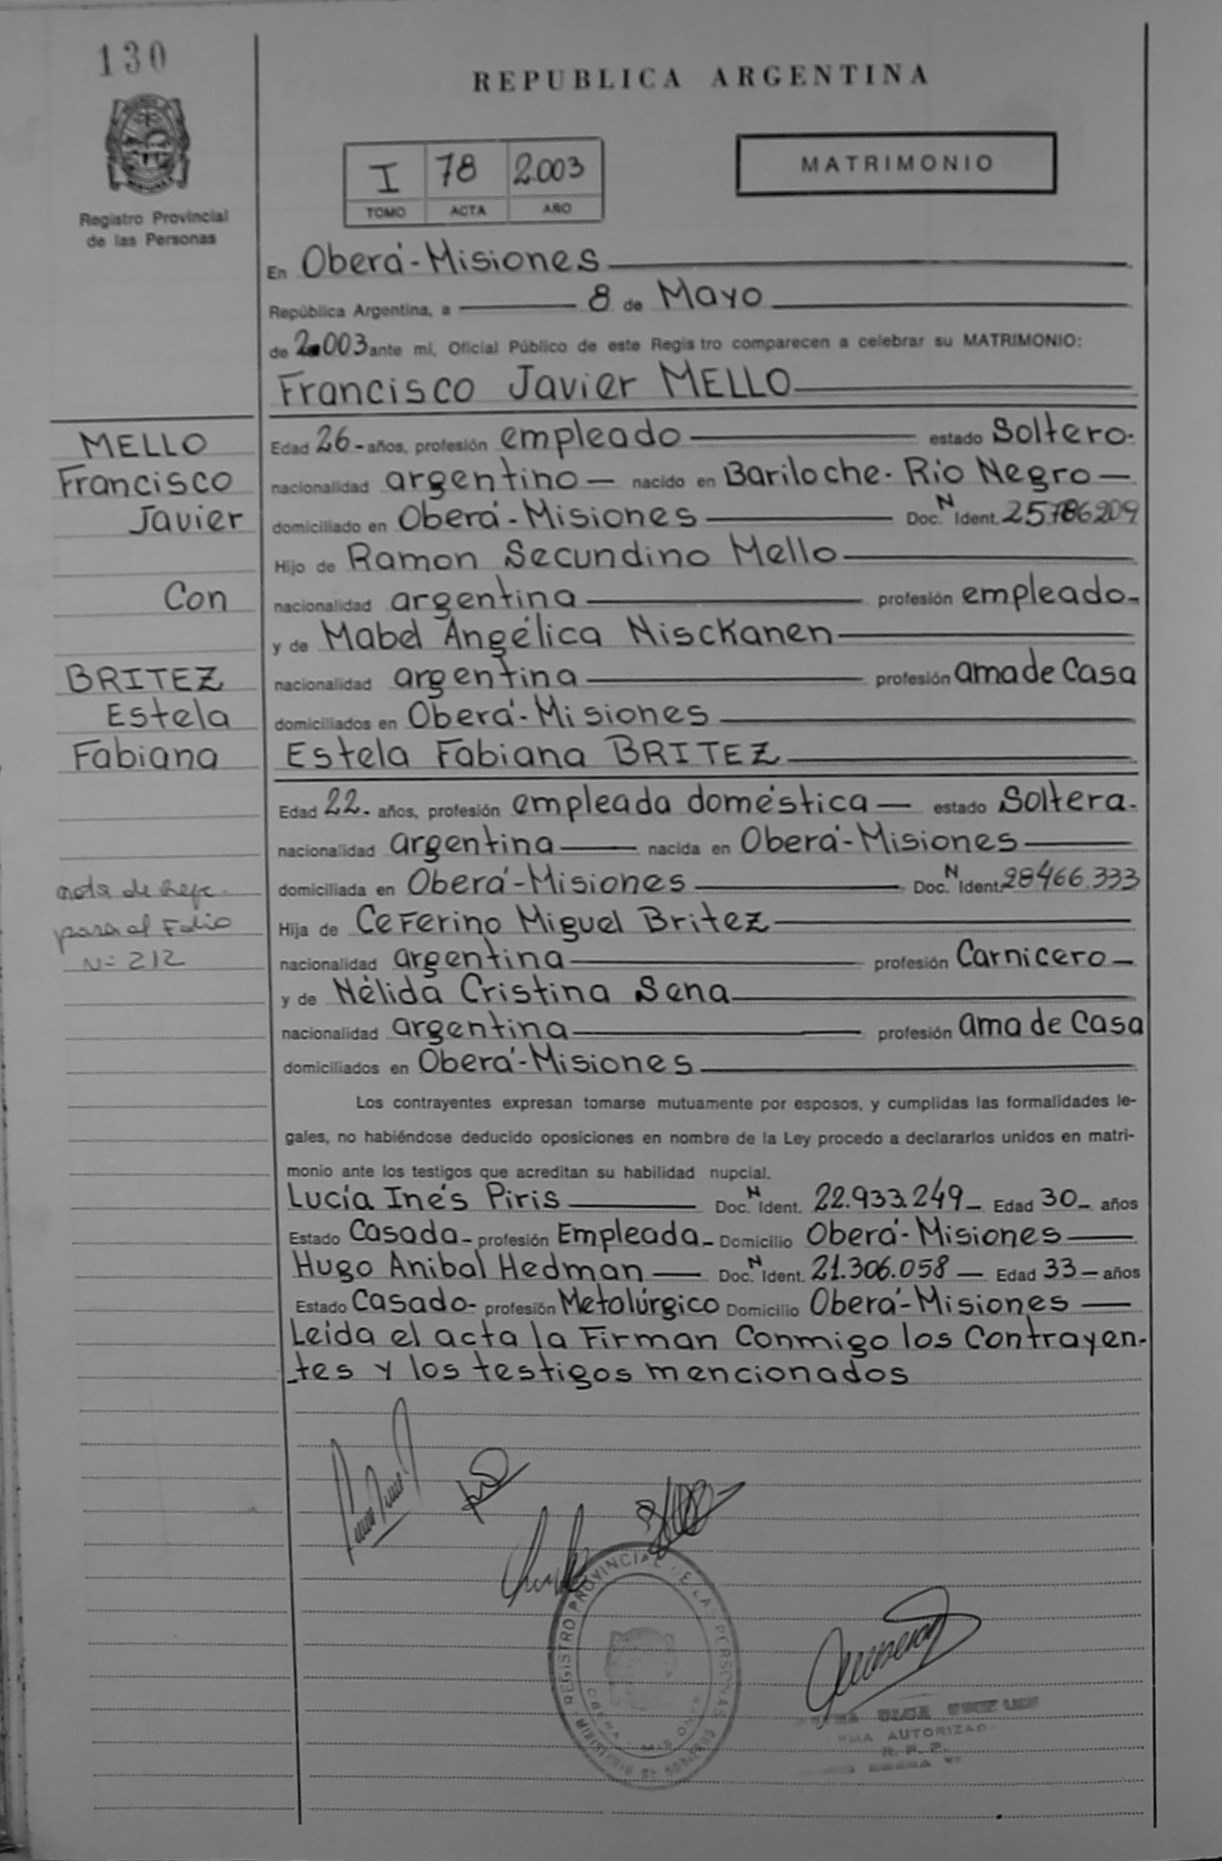 130
REPUBLICA ARGENTINA
I 78 2.003
TOMO ACTA AÑO
MATRIMONIO
Registro Provincial
de las Personas
En Oberá-Misiones
República Argentina, a 8 de Mayo
de 2.003 ante mí, Oficial Público de este Registro comparecen a celebrar su MATRIMONIO:
Francisco Javier MELLO
MELLO
Francisco
Javier
Con
BRITEZ
Estela
Fabiana
Edad 26- años, profesión empleado estado Soltero.
nacionalidad argentino nacido en Bariloche. Río Negro
domiciliado en Oberá-Misiones Doc. N Ident. 25.786.209
Hijo de Ramon Secundino Mello
nacionalidad argentina profesión empleado
y de Mabel Angélica Nisckanen
nacionalidad argentina profesión ama de Casa
domiciliados en Oberá-Misiones
Estela Fabiana BRITEZ
Edad 22- años, profesión empleada doméstica estado Soltera.
nacionalidad argentina nacida en Oberá-Misiones
domiciliada en Oberá-Misiones Doc. N Ident. 28466.333
Hija de Ceferino Miguel Britez
nacionalidad argentina profesión Carnicero
y de Nélida Cristina Sena
nacionalidad argentina profesión ama de Casa
domiciliados en Oberá-Misiones
nota de Refe.
para al Folio
N= 212
Los contrayentes expresan tomarse mutuamente por esposos, y cumplidas las formalidades le-
gales, no habiéndose deducido oposiciones en nombre de la Ley procedo a declararlos unidos en matri-
monio ante los testigos que acreditan su habilidad nupcial.
Lucía Inés Piris Doc. N Ident. 22.933.249 Edad 30 años
Estado Casada profesión Empleada Domicilio Oberá-Misiones
Hugo Anibal Hedman Doc. N Ident. 21.306.058 Edad 33 años
Estado Casado profesión Metalúrgico Domicilio Oberá-Misiones
Leída el acta la Firman Conmigo los Contrayen-
tes y los testigos mencionados
REGISTRO PROVINCIAL DE LAS PERSONAS
OLGA
AUTORIZAD